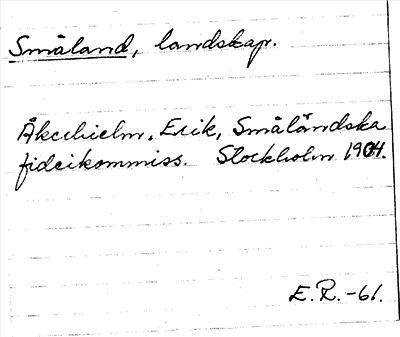 Småland, landskap.
Åkerhielm, Erik, Småländska
fideikommiss. Stockholm 1904.
E.R.-61.